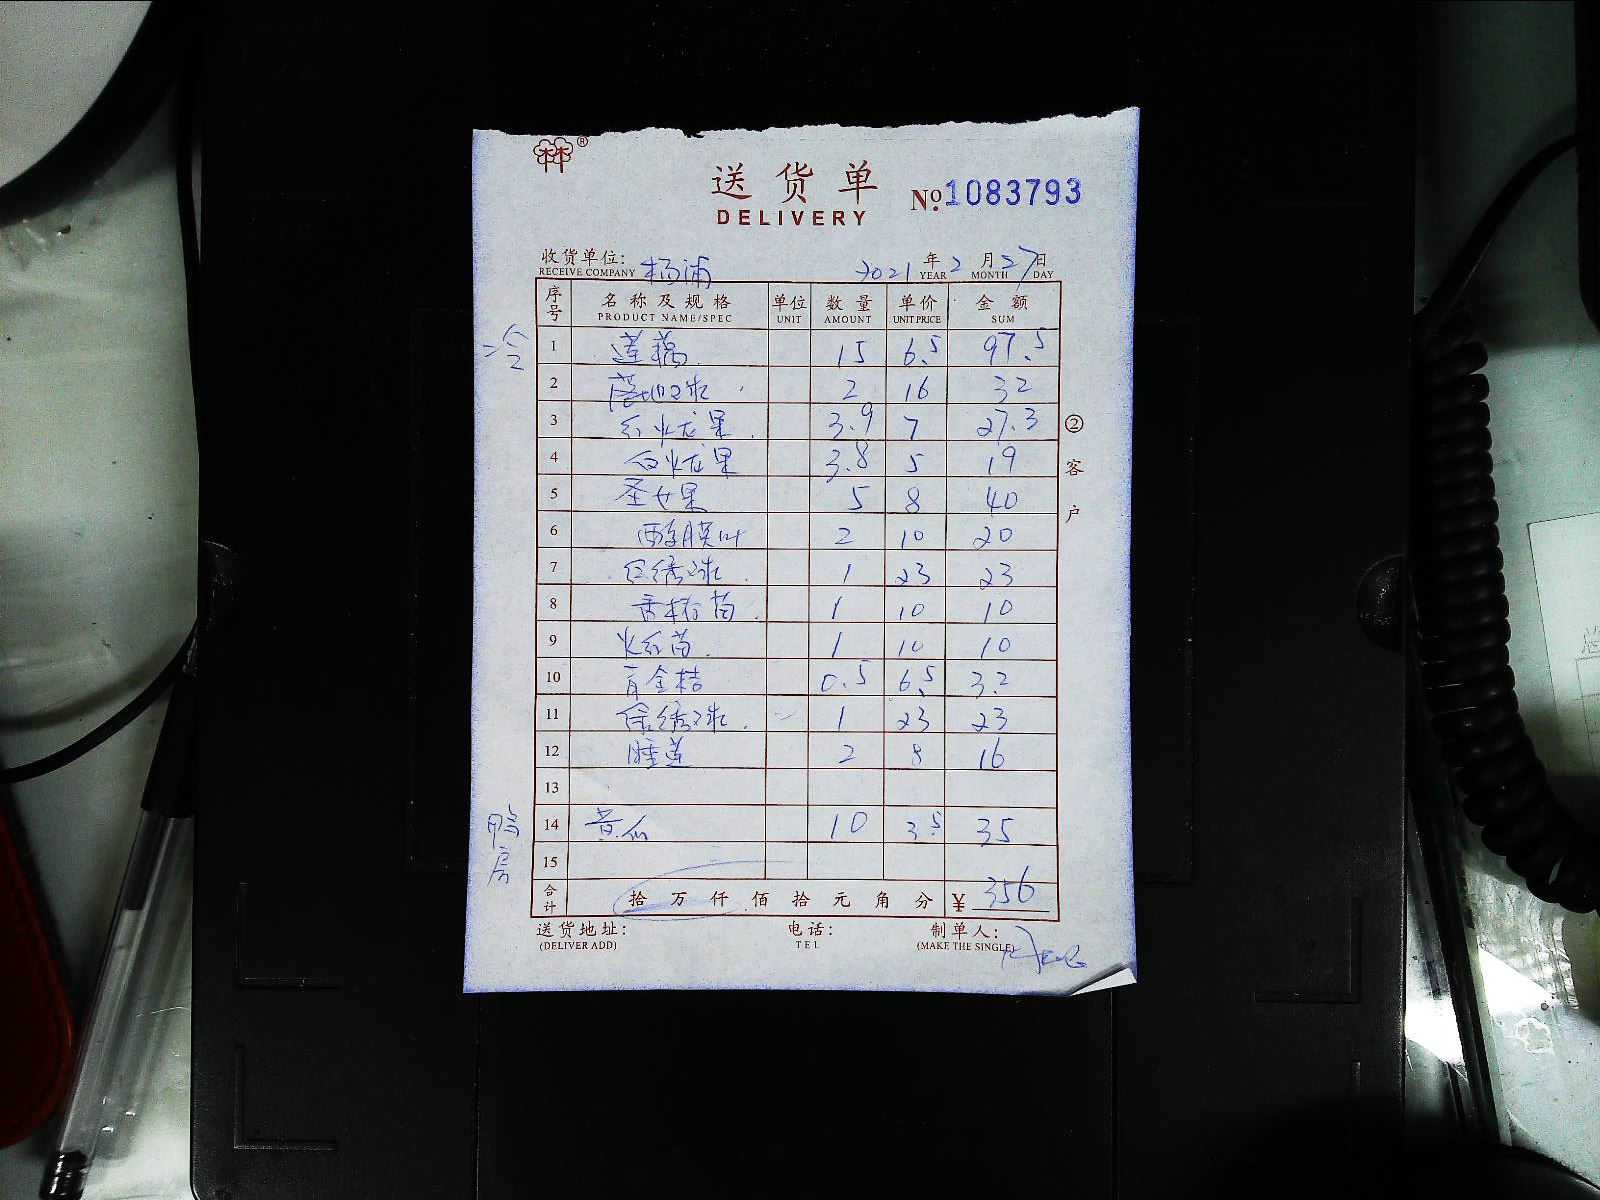 林 ®
送货单 №1083793
DELIVERY
收货单位: 杨浦 2021年2月27日
RECEIVE COMPANY YEAR MONTH DAY
序号 名称及规格 单位 数量 单价 金额
PRODUCT NAME/SPEC UNIT AMOUNT UNIT PRICE SUM
冷
1 莲藕 15 6.5 97.5
2 2 16 32
3 红火龙果 3.9 7 27.3
4 白火龙果 3.8 5 19
5 圣女果 5 8 40
6 2 10 20
7 白绣球 1 23 23
8 苗 1 10 10
9 火红苗 1 10 10
10 青金桔 0.5 6.5 3.2
11 绿绣球 1 23 23
12 睡莲 2 8 16
13
鸭房
14 黄瓜 10 3.5 35
15
合计 拾万仟佰拾元角分 ¥ 356
送货地址: 电话: 制单人:
(DELIVER ADD) TEL (MAKE THE SINGLE)
②客户